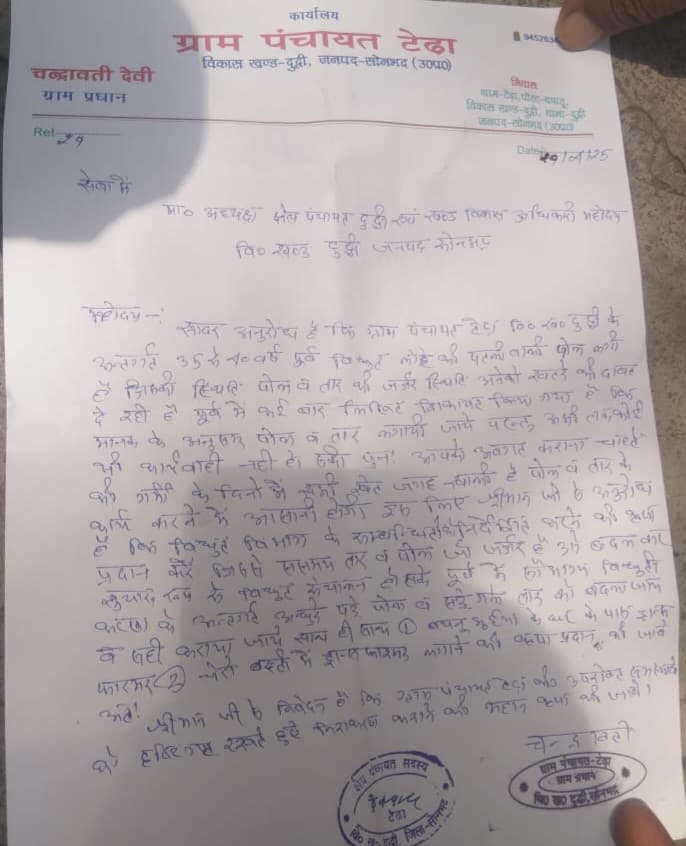 कार्यालय
ग्राम पंचायत टेढा
विकास खण्ड-दुद्धी, जनपद-सोनभद्र (उ0प्र0)
9452634
चन्द्रावती देवी
ग्राम प्रधान
निवास
ग्राम-टेढा, पोस्ट-
विकास खण्ड-दुद्धी, थाना-दुद्धी
जनपद-सोनभद्र (उ0प्र0)
Ref 29
Date
सेवा में
मा० अध्यक्ष क्षेत्र पंचायत दुद्धी एवं खण्ड विकास अधिकारी महोदय
वि० खण्ड दुद्धी जनपद सोनभद्र
महोदय -:
सादर अनुरोध है कि ग्राम पंचायत टेढा वि० ख० दुद्धी के
अन्तर्गत 35 से 40 वर्ष पूर्व विद्युत लोहे की पतली वाली पोल लगी
है जिसकी स्थिति पोल व तार की जर्जर स्थिति अनेको खतरे की दावत
दे रही है पूर्व में कई बार लिखित शिकायत किया गया है कि
मानक के अनुसार पोल व तार लगायी जाये परन्तु अभी तक कोई
भी कार्यवाही नही हो सकी पुनः आपको अवगत कराना चाहते
की गर्मी के दिनों में सभी खेत जगह खाली है पोल व तार के
कार्य करने में आसानी होगी इस लिए श्रीमान जी से अनुरोध
है कि विद्युत विभाग के सम्बन्धित को निर्देशित करने की कृपा
प्रदान करें जिससे ससमय तार व पोल जो जर्जर है उसे बदल कर
सुचारू रूप से विद्युत संचालन हो सके पूर्व में सौभाग्य विद्युती
करण के अन्तर्गत अधुरे पड़े पोल व सड़े गले तार को बदला जाय
व सही कराया जाये साथ ही साथ ① के घर के पास ट्रान्स
फारमर ② बस्ती में ट्रान्सफारमर लगाने की कृपा प्रदान की जावे
अतः श्रीमान जी से निवेदन है कि ग्राम पंचायत टेढा की उपरोक्त
को दृष्टिगत रखते हुये निराकरण कराने की महान कृपा की जावे।
चन्द्रावती
क्षेत्र पंचायत सदस्य
टेढा
वि० ख० दुद्धी जिला-सोनभद्र
ग्राम पंचायत-टेढा
ग्राम प्रधान
वि0 ख0 दुद्धी, सोनभद्र